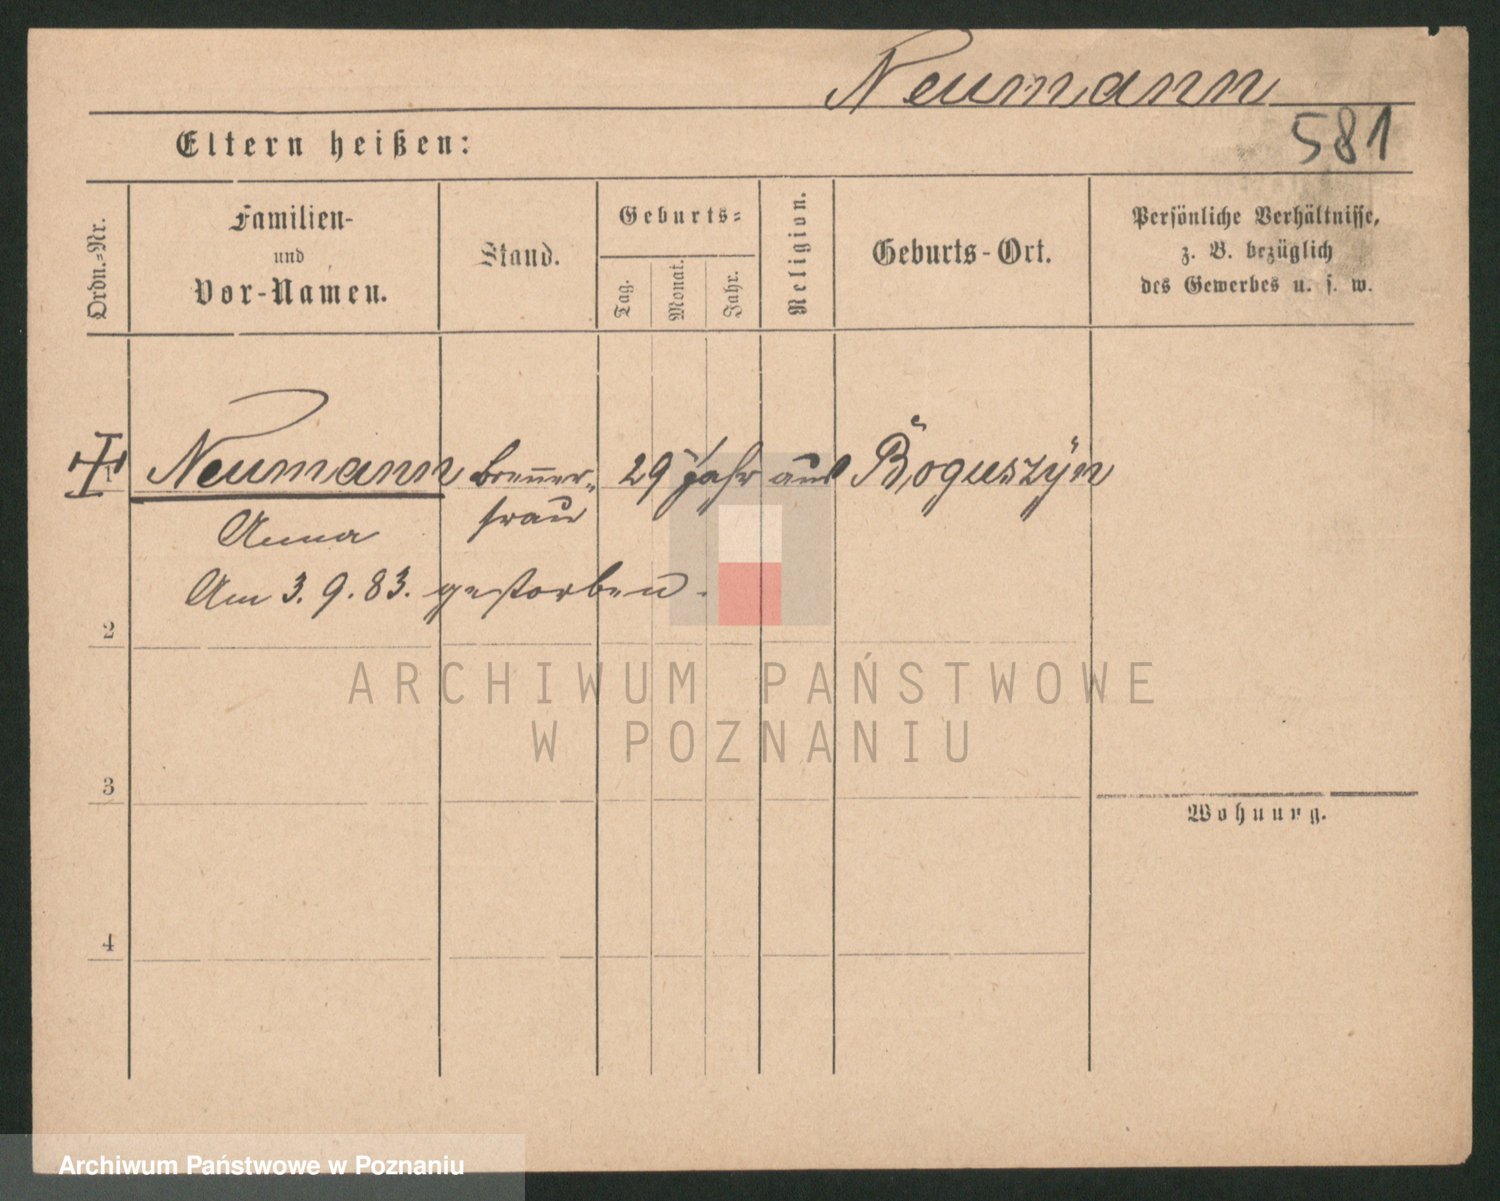 Neumann
581
Eltern heißen:
Ordn.-Nr.
Familien-
und
Vor-Namen.
Stand.
Geburts-
Tag.
Monat.
Jahr.
Religion.
Geburts-Ort.
Persönliche Verhältnisse,
z. B. bezüglich
des Gewerbes u. s. w.
Neumann Brenner- 29 Jahr aus Boguszÿn
Anna frau
Am 3. 9. 83. gestorben.
2
3
4
Wohnung.
ARCHIWUM PAŃSTWOWE
W POZNANIU
Archiwum Państwowe w Poznaniu